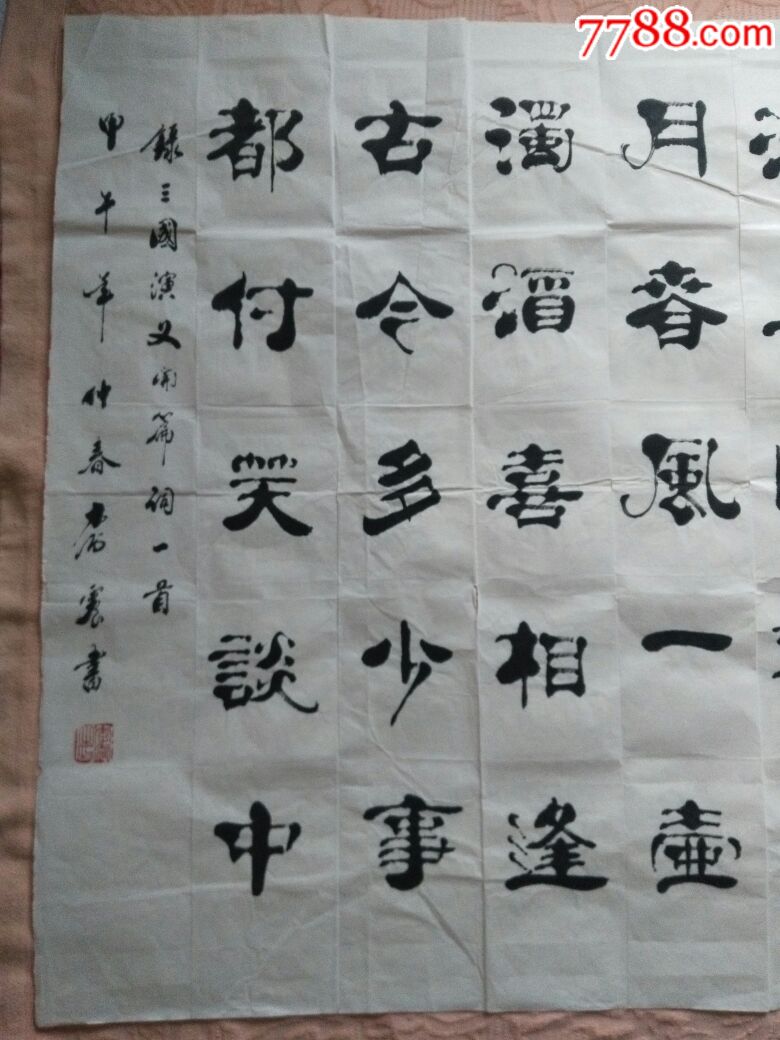 月春風一壺
濁酒喜相逢
古今多少事
都付笑談中
錄三國演义開篇詞一首
甲午年仲春震書
7788.com